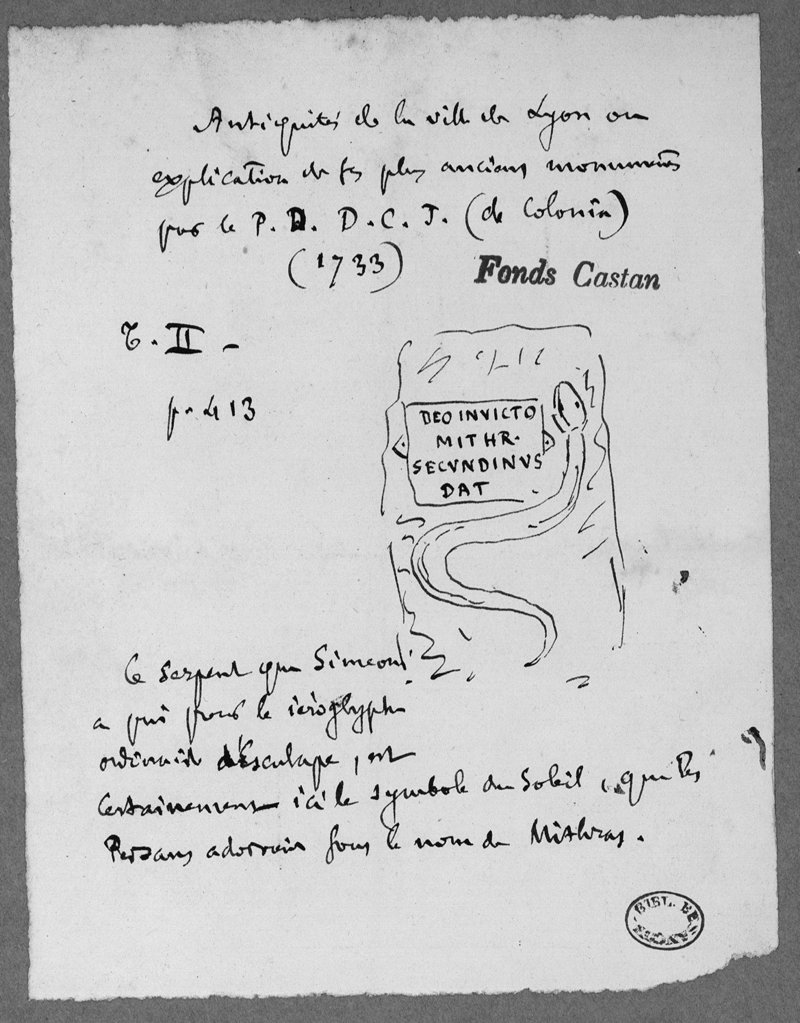 Antiquités de la ville de Lyon ou
explication de ses plus anciens monuments
par le P. D. D. C. J. (de Colonia)
(1733)
Fonds Castan
T. II -
p. 413
DEO INVICTO
MITHR.
SECVNDINVS
DAT
Le serpent que Simeoni
a pris pour le ieroglyphe
ordinaire d'Esculape, est
certainement ici le symbole du Soleil, que les
Persans adoroient sous le nom de Mithras.
BIBL. BE
SANÇON